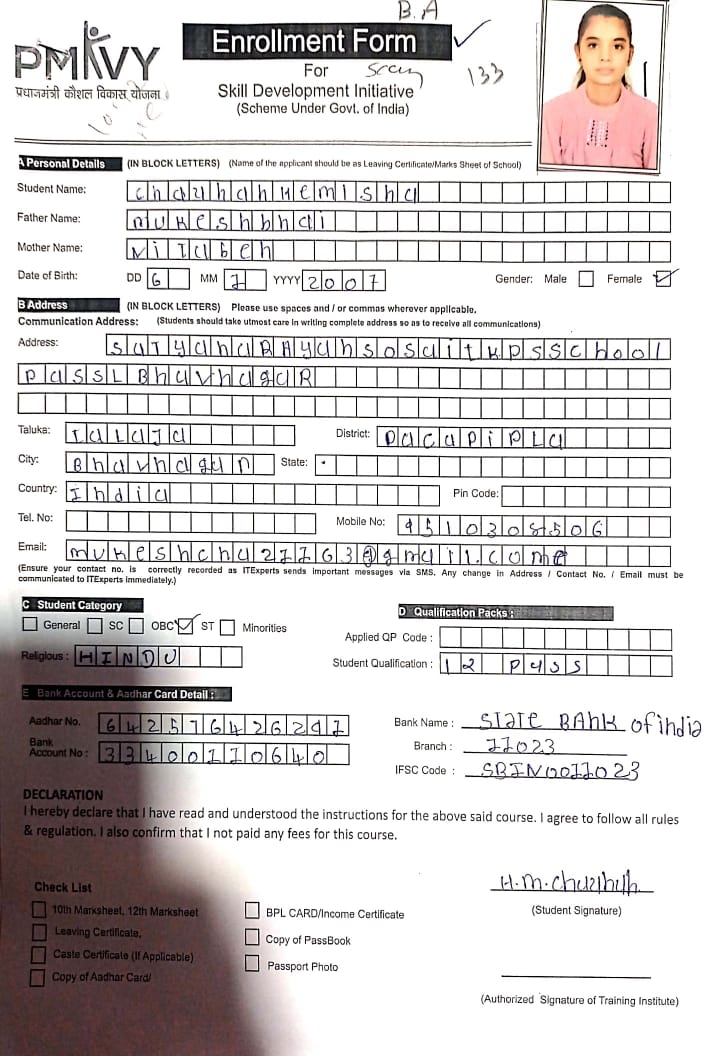 B.A
PMKVY
प्रधानमंत्री कौशल विकास योजना
Enrollment Form
For
133
Skill Development Initiative
(Scheme Under Govt. of India)
A Personal Details (IN BLOCK LETTERS) (Name of the applicant should be as Leaving Certificate/Marks Sheet of School)
Student Name: chauhan Hemisha
Father Name: mukeshbhai
Mother Name:
Date of Birth: DD 6 MM 1 YYYY 2007 Gender: Male Female ✓
B Address (IN BLOCK LETTERS) Please use spaces and / or commas wherever applicable.
Communication Address: (Students should take utmost care in writing complete address so as to receive all communications)
Address: SatyanaRAyan sosait KPS School
pass L BhavnagaR
Taluka: TaLaJa District: DacapipLa
City: Bhavnagar State:
Country: India Pin Code:
Tel. No: Mobile No:
Email:
(Ensure your contact no. is correctly recorded as ITExperts sends important messages via SMS. Any change in Address / Contact No. / Email must be
communicated to ITExperts immediately.)
C Student Category
General SC OBC ✓ ST Minorities
Religious : HINDU
D Qualification Packs :
Applied QP Code :
Student Qualification : 12 pass
E Bank Account & Aadhar Card Detail :
Aadhar No.
Bank
Account No : 33400110640
Bank Name : State BAnk of india
Branch : 11023
IFSC Code : SBIN0011023
DECLARATION
I hereby declare that I have read and understood the instructions for the above said course. I agree to follow all rules
& regulation. I also confirm that I not paid any fees for this course.
H.M.Chauhan
(Student Signature)
Check List
10th Marksheet, 12th Marksheet
Leaving Certificate,
Caste Certificate (If Applicable)
Copy of Aadhar Card/
BPL CARD/Income Certificate
Copy of PassBook
Passport Photo
(Authorized Signature of Training Institute)